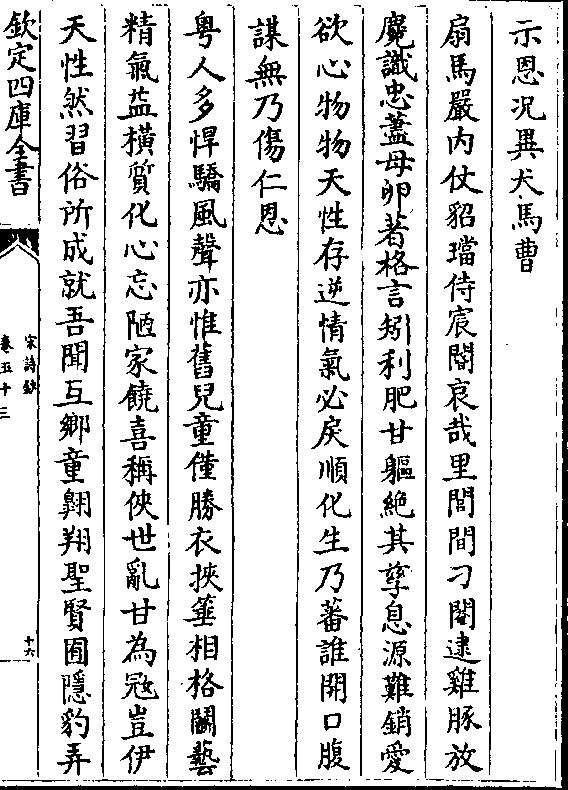 示恩况異犬馬曹
扇馬嚴内仗貂璫侍宸閽哀哉里閭間刁閹逮雞豚放
麑識忠蓋母卵著格言矧利肥甘軀絶其孳息源難銷愛
欲心物物天性存逆情氣必戾順化生乃蕃誰開口腹
謀無乃傷仁恩
粤人多悍驕風聲亦惟舊兒童僅勝衣挾箠相格鬭藝
精氣益横質化心忘陋家饒喜稱俠世亂甘為冦豈伊
天性然習俗所成就吾聞互鄉童翺翔聖賢囿隱豹弄
欽定四庫全書
宋詩鈔
卷五十三
十六